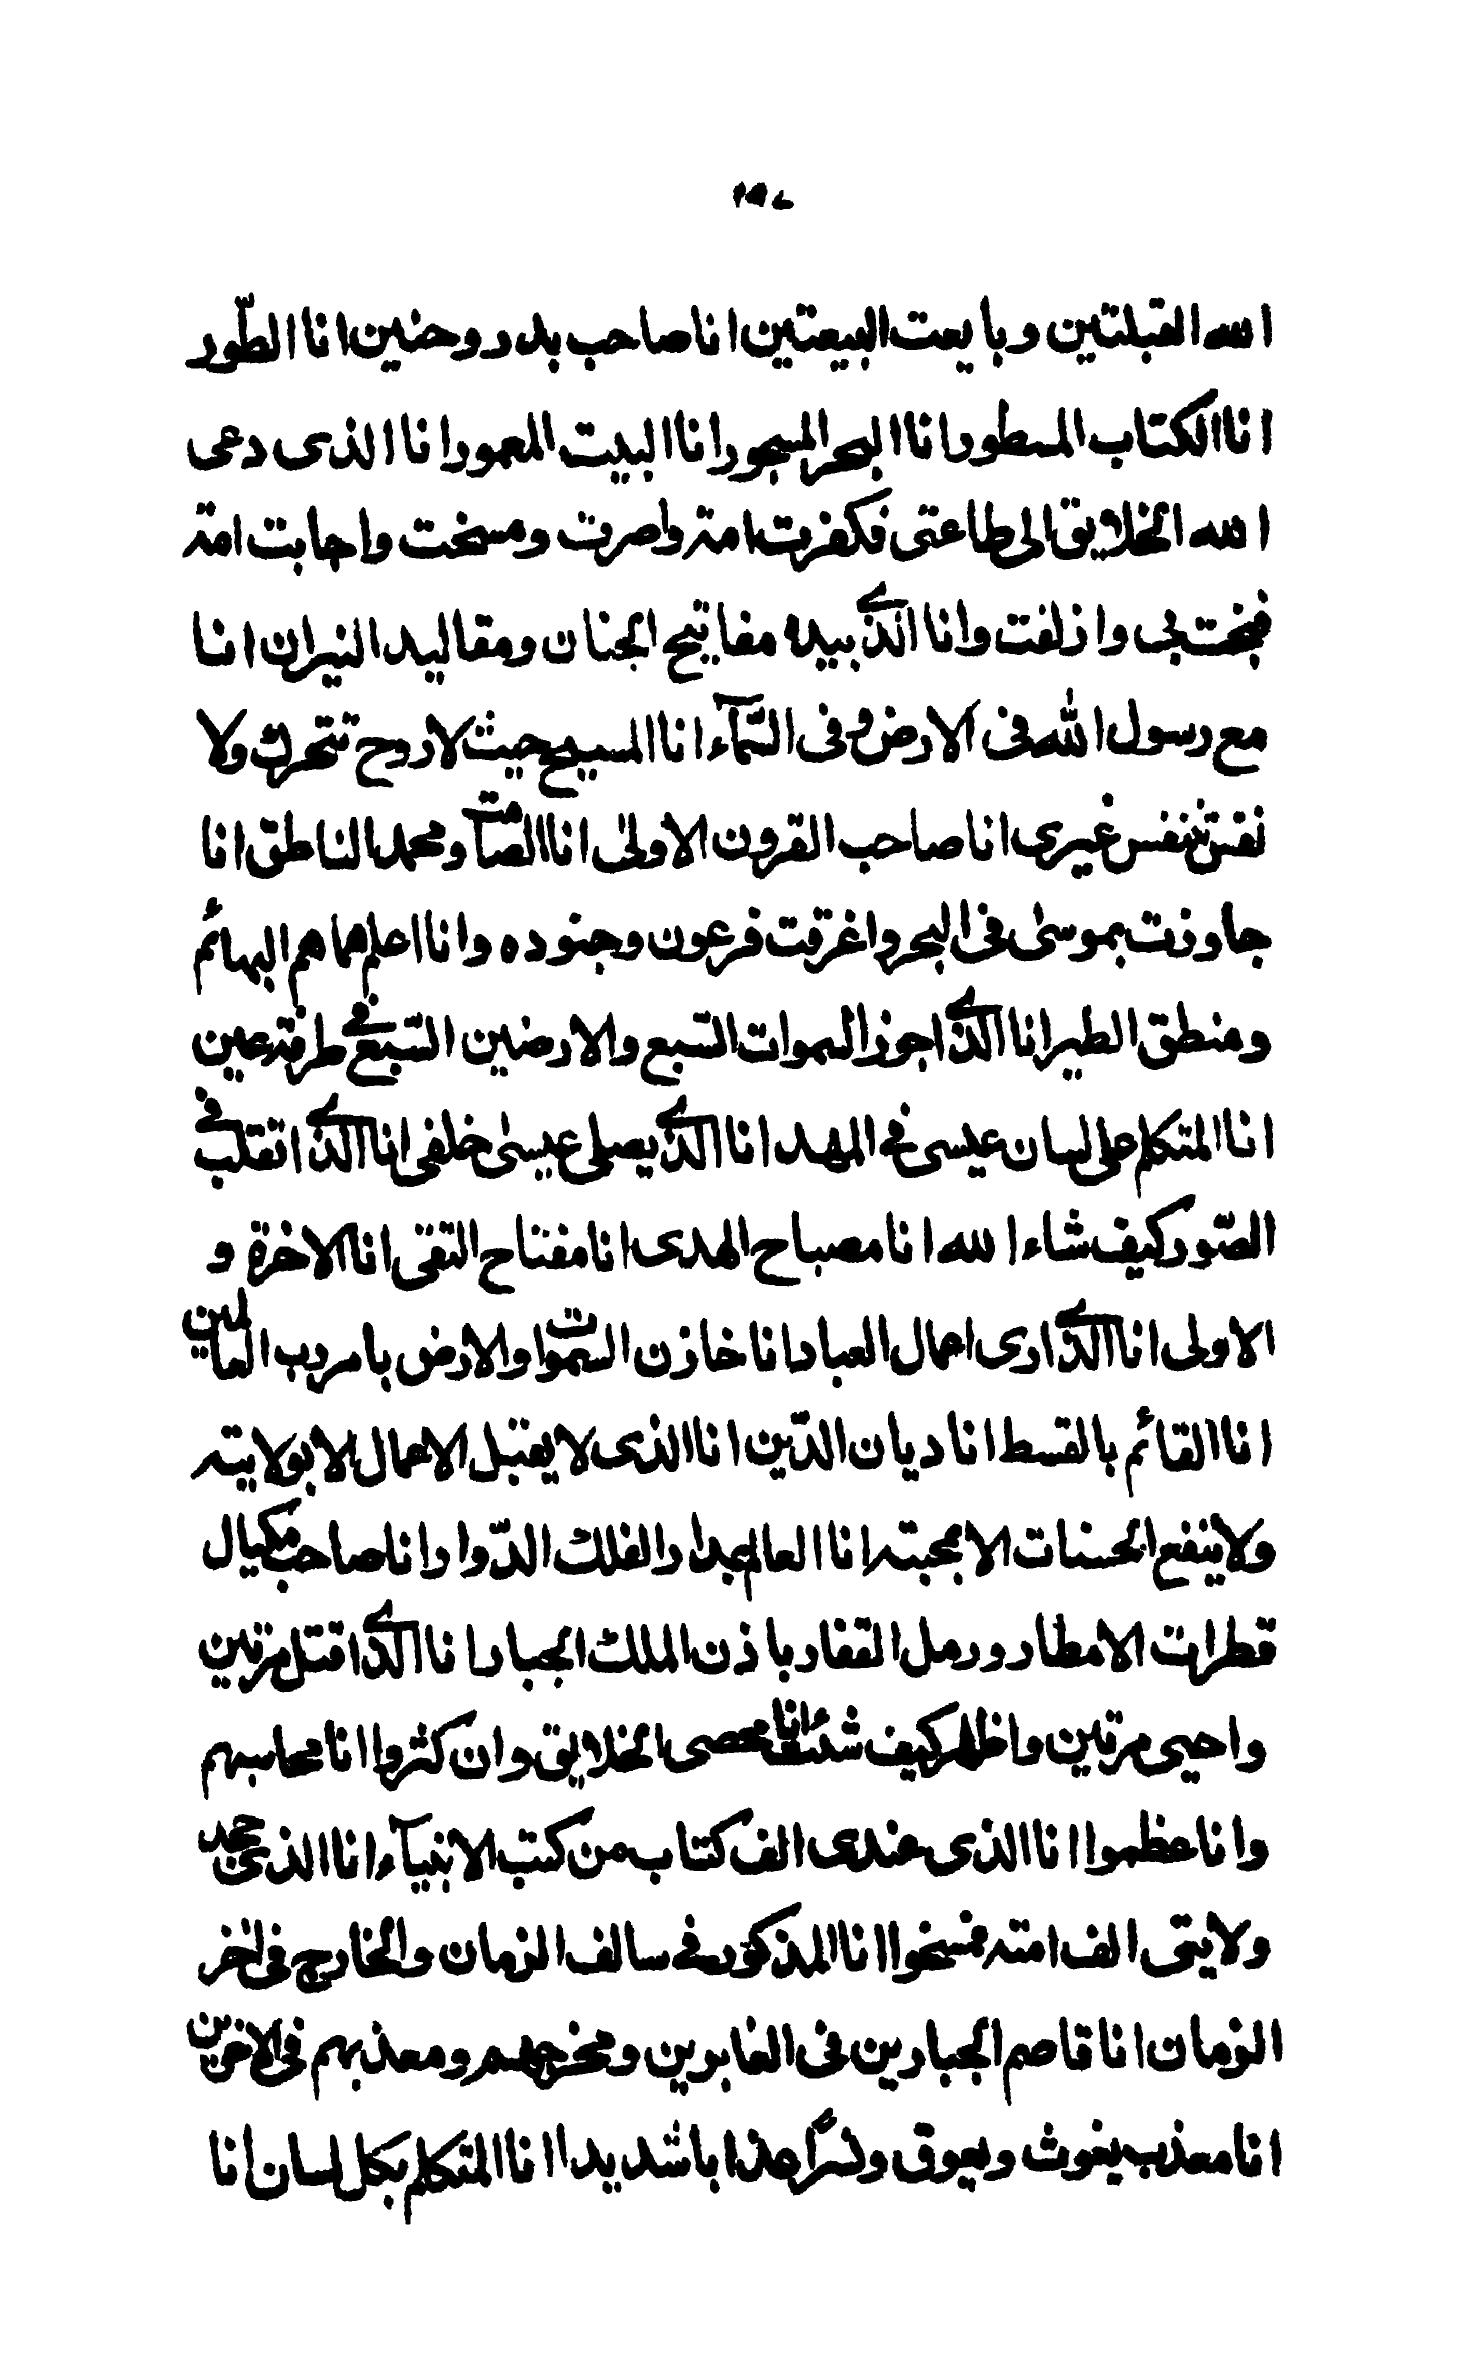 الله القبلتين وبايعت البيعتين انا صاحب بدر وحنين انا الطّور
انا الكتاب المسطور انا البحر المسجور انا البيت المعمور انا الذى دعى
الله الخلايق الى طاعتى فكفرت امة واصرت ومسخت واجابت امة
فنجت بى وازلفت وانا الذي بيده مفاتيح الجنان ومقاليد النيران انا
مع رسول الله فى الارض وفى السّمآء انا المسيح حيث لا روح تتحرك ولا
نفس تنفس غيرى انا صاحب القرون الاولى انا الصّامت ومحمد الناطق انا
جاوزت بموسى فى البحر واغرقت فرعون وجنوده وانا اعلم هماهم البهائم
ومنطق الطير انا الذي اجوز السموات السّبع والارضين السّبع في طرفة عين
انا المتكلم على لسان عيسى في المهد انا الذي يصلى عيسى خلفى انا الذي اتقلب في
الصّور كيف شاء الله انا مصباح الهدى انا مفتاح التقى انا الاخرة و
الاولى انا الذي ارى اعمال العباد انا خازن السّموات والارض بامر رب العالمين
انا القائم بالقسط انا ديان الدّين انا الذى لا يقبل الاعمال الا بولايته
ولا ينفع الحسنات الا بمحبته انا العالم بمدار الفلك الدّوار انا صاحب مكيال
قطرات الامطار ورمل القفار باذن الملك الجبار انا الذي اقتل مرتين
واحيى مرتين واظهر كيف شئت انا محصى الخلايق وان كثروا انا محاسبهم
وانا عظموا انا الذى عندى الف كتاب من كتب الانبيآء انا الذى جحد
ولايتى الف امته فمسخوا انا المذكور في سالف الزمان والخارج فى اخر
الزمان انا قاصم الجبارين فى الغابرين ومخرجهم ومعذبهم فى الاخرين
انا معذب يغوث ويعوق ونسرًا عذابا شديدا انا المتكلم بكل لسان انا